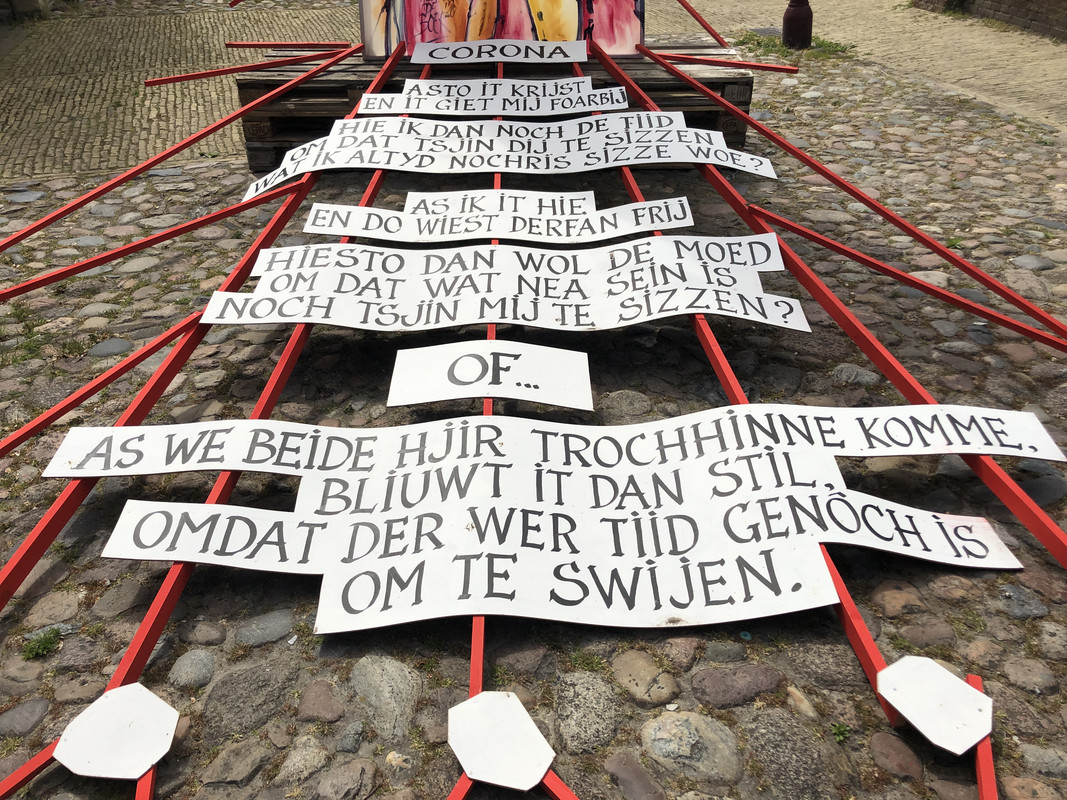 CORONA
ASTO IT KRIJST
EN IT GIET MIJ FOARBIJ
HIE IK DAN NOCH DE TIID
OM DAT TSJIN DIJ TE SIZZEN
WAT IK ALTYD NOCHRIS SIZZE WOE?
AS IK IT HIE
EN DO WIEST DERFAN FRIJ
HIESTO DAN WOL DE MOED
OM DAT WAT NEA SEIN IS
NOCH TSJIN MIJ TE SIZZEN?
OF...
AS WE BEIDE HJIR TROCHHINNE KOMME,
BLIUWT IT DAN STIL,
OMDAT DER WER TIID GENÔCH IS
OM TE SWIJEN.